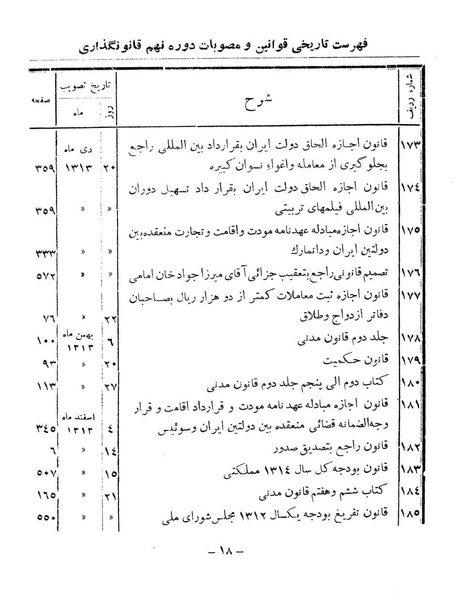 فهرست تاریخی قوانین و مصوبات دوره نهم قانونگذاری
شماره ردیف شرح تاریخ تصویب صفحه
روز ماه
۱۷۳ قانون اجازه الحاق دولت ایران بقرارداد بین المللی راجع دی ماه
بجلوگیری از معامله واغواء نسوان کبیره ۲۰ ۱۳۱۳ ۳۵۹
۱۷٤ قانون اجازه الحاق دولت ایران بقرار داد تسهیل دوران
بین‌المللی فیلمهای تربیتی » » ۳۵۹
۱۷۵ قانون اجازه مبادله عهدنامه مودت واقامت و تجارت منعقده بین
دولتین ایران ودانمارک » » ۳۳۳
۱۷۶ تصمیم قانونی راجع بتعقیب جزائی آقای میرزا جوادخان امامی » » ۵۷۲
۱۷۷ قانون اجازه ثبت معاملات کمتر از دو هزار ریال بصاحبان
دفاتر ازدواج وطلاق ۲۲ » ۷۶
۱۷۸ جلد دوم قانون مدنی ۶ بهمن ماه ۱۳۱۳ ۱۰۰
۱۷۹ قانون حکمیت ۲۰ » ۹۳
۱۸۰ کتاب دوم الی پنجم جلد دوم قانون مدنی ۲۷ » ۱۱۳
۱۸۱ قانون اجازه مبادله عهدنامه مودت و قرارداد اقامت و قرار
وجه‌الضمانه قضائی منعقده بین دولتین ایران وسوئیس ٤ اسفند ماه ۱۳۱۳ ۳٤۵
۱۸۲ قانون راجع بتصدیق صدور ۱٤ » ۶
۱۸۳ قانون بودجه کل سال ۱۳۱٤ مملکتی ۱۵ » ۵۰۷
۱۸٤ کتاب ششم وهفتم قانون مدنی ۲۱ » ۱۶۵
۱۸۵ قانون تفریغ بودجه یکسال ۱۳۱۲ مجلس شورای ملی » » ۵۵۰
– ۱۸ –